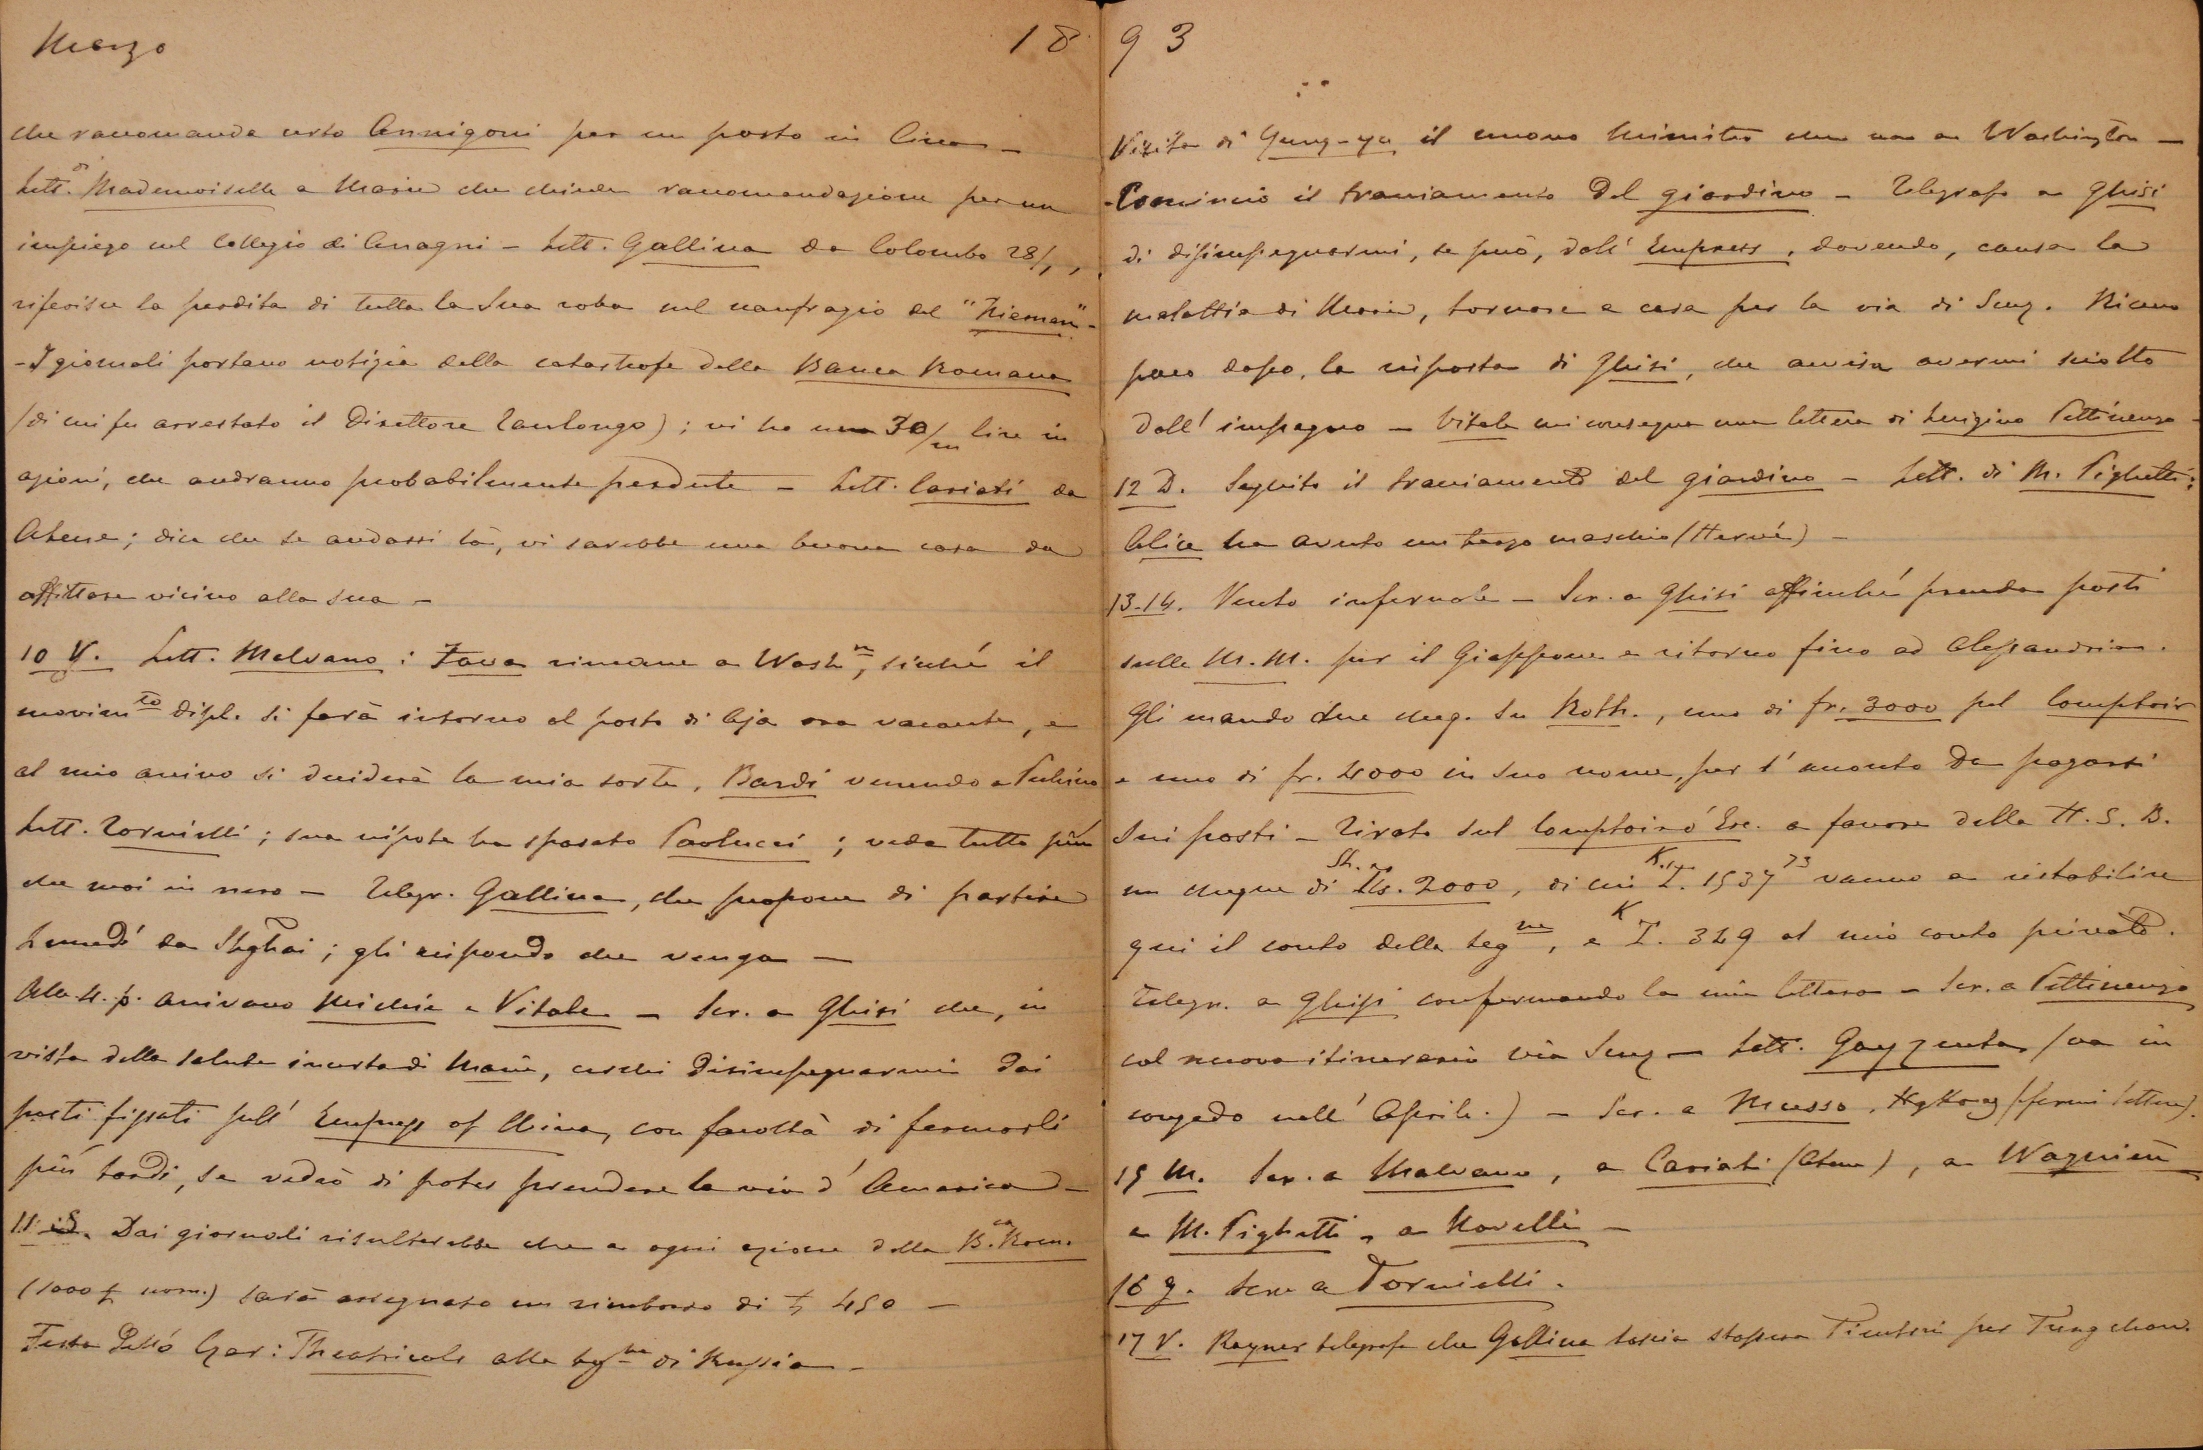 Marzo 18 93
che raccomanda certo Annigoni per un posto in Cina —
Lett. di Mademoiselle a Marie che chiede raccomandazione per un
impiego nel Collegio di Anagni — Lett. Gallina da Colombo 28/1,
riferisce la perdita di tutta la sua roba nel naufragio del "Niemen" —
- I giornali portano notizia della catastrofe della Banca Romana
(di cui fu arrestato il Direttore Tanlongo); vi ho 30/m lire in
azioni, che andranno probabilmente perdute — Lett. Cariati da
Atene; dice che se andassi là, vi sarebbe una buona casa da
affittare vicino alla sua —
10 V. Lett. Malvano: Fava rimane a Wash.n, sinché il
movim.to dipl. si farà intorno al posto di Aja ora vacante, e
al mio arrivo si deciderà la mia sorte, Bardi venendo a Pechino
Lett. Tornielli; sua nipote ha sposato Paolucci; vede tutto più
che mai in nero — Telegr. Gallina, che propone di partire
lunedì da Shghai; gli rispondo che venga —
Alle 4. p. arrivano Michie e Vitale — Scr. a Ghisi che, in
vista della salute incerta di Marie, cerchi disimpegnarmi dai
posti fissati sull' Empress of China, con facoltà di fermarli
più tardi, se vedrò di poter prendere la via d'America —
11 S. Dai giornali risulterebbe che a ogni azione della B.ca Rom.
(1000 £ nom.) sarà assegnato un rimborso di £ 450 —
Festa Theatricals alla leg.ne di Russia —
Visita di Yung-yu il nuovo Ministro che va a Washington —
- Comincio il tracciamento del giardino — Telegrafo a Ghisi
di disimpegnarmi, se può, dall' Empress, dovendo, causa la
malattia di Marie, tornare a casa per la via di Suez. Ricevo
poco dopo, la risposta di Ghisi, che avvisa avermi sciolto
dall' impegno — Vitale mi consegna una lettera di Luigino Pettinengo —
12 D. Seguito il tracciamento del giardino — Lett. di M. Pighetti:
Alice ha avuto un terzo maschio (Hervé) —
13-14. Vento infernale — Scr. a Ghisi affinché prenda posti
sulle M. M. per il Giappone e ritorno fino ad Alessandria.
Gli mando due cheq. su Roth., uno di fr. 3000 pel Comptoir
e uno di fr. 4000 in suo nome, per l'acconto da pagarsi
sui posti — Tirato sul Comptoir d'Esc. a favore della H. S. B.
un cheque di Sh. Tls. 2000, di cui K. T. 1537 73 vanno a ristabilire
qui il conto della leg.ne, e K T. 329 al mio conto privato.
Telegr. a Ghisi confermando la mia lettera — Scr. a Pettinengo
col nuovo itinerario via Suez — Lett. (va in
congedo nell' Aprile.) — Scr. a Musso, HgKong (fermi lettere).
15 M. Scr. a Malvano, a Cariati (Atene), a Wagnière
a M. Pighetti, a Novelli —
16 g. Scr. a Tornielli.
17 V. Rayner telegrafa che Gallina lascia stassera Tientsin per Tungchow.